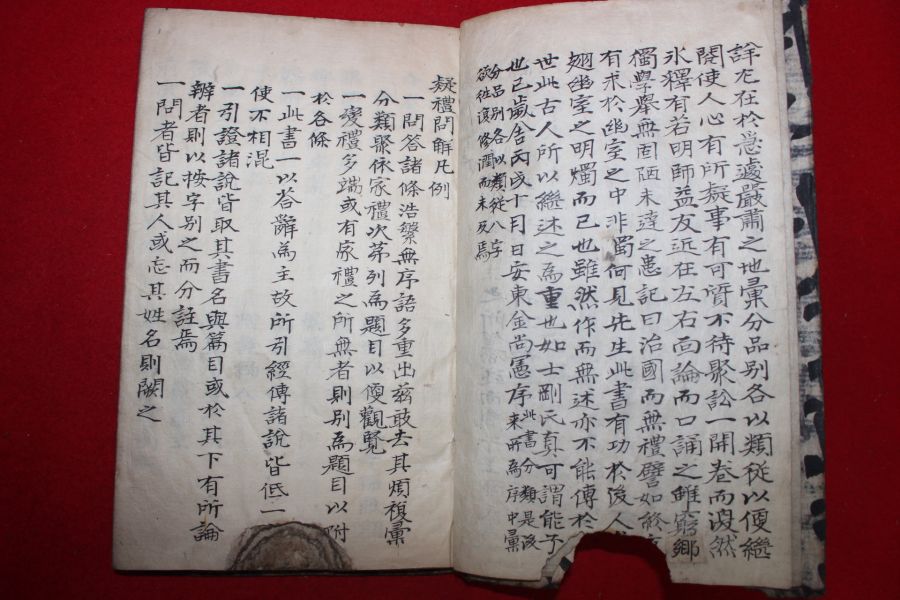 詳尤在於急遽嚴肅之地彙分品別各以類從以便繼
閱使人心有所疑事有可質不待聚訟一開卷而渙然
氷釋有若明師益友近在左右面論而口誦之雖窮鄉
獨學擧無固陋未達之患記曰治國而無禮譬如終
有求於幽室之中非燭何見先生此書有功於後人
翅幽室之明燭而已也雖然作而無述亦不能傳於
世此古人所以繼述之爲重也如士剛氏眞可謂能子
也已歲舍丙戌十月日安東金尙憲序此書分類是後來所爲序中彙
分品別各以類從八字欲往復修潤而未及焉
疑禮問解凡例
一問答諸條浩繁無序語多重出玆敢去其煩複彙
分類聚依家禮次第列爲題目以便觀覽
一變禮多端或有家禮之所無者則別爲題目以附
於各條
一此書一以答辭爲主故所引經傳諸說皆低一
使不相混
一引證諸說皆取其書名與篇目或於其下有所論
辨者則以按字別之而分註焉
一問者皆記其人或忘其姓名則闕之